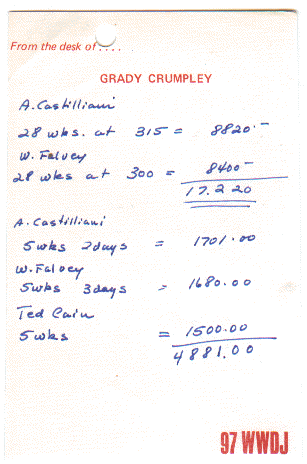 From the desk of....
GRADY CRUMPLEY
A. Castilliani
28 wks. at 315 = 8820.-
W. Falvey
28 wks at 300 = 8400-
17.220
A. Castilliani
5wks 2days = 1701.00
W. Falvey
5wks 3days = 1680.00
Ted Cain
5 wks = 1500.00
4881.00
97 WWDJ